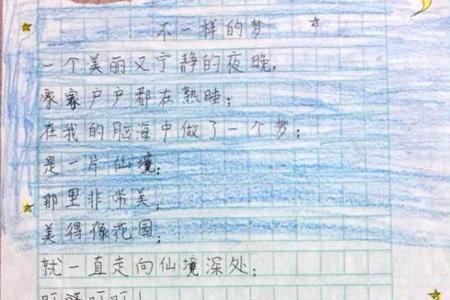 不一样的梦
一个美丽又宁静的夜晚，
家家户户都在熟睡；
在我的脑海中做了一个梦；
是一片仙境；
那里非常美；
美得像花园；
就一直走向仙境深处；